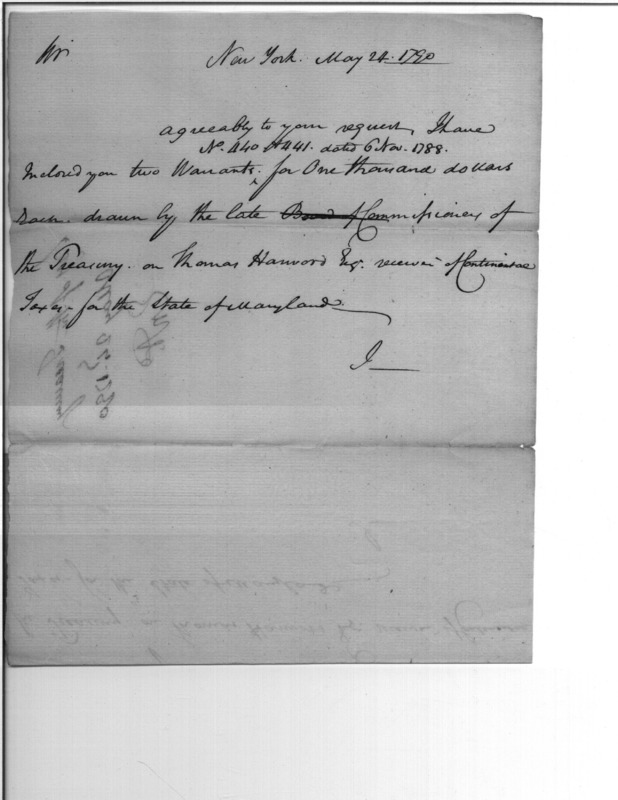 Sir
New York. May 24. 1790
agreeably to your request, I have
No. 440 & 441. dated 6 Nov. 1788.
Inclosed you two Warrants. for One thousand dollars
Each. drawn by the late Board of Commissioners of
the Treasury. on Thomas Harwood Esqr. receiver of Continental
Taxes - for the State of Maryland
I